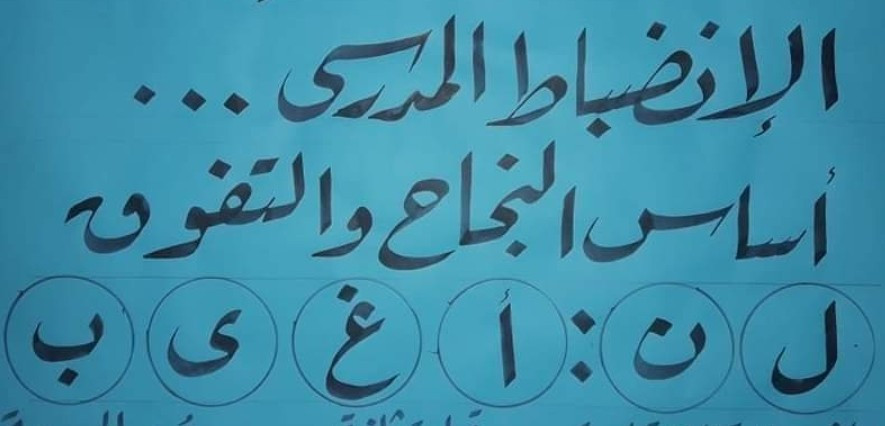 الإنضباط المدرسى ...
أساس النجاح والتفوق
ل ن : أ غ ى ب